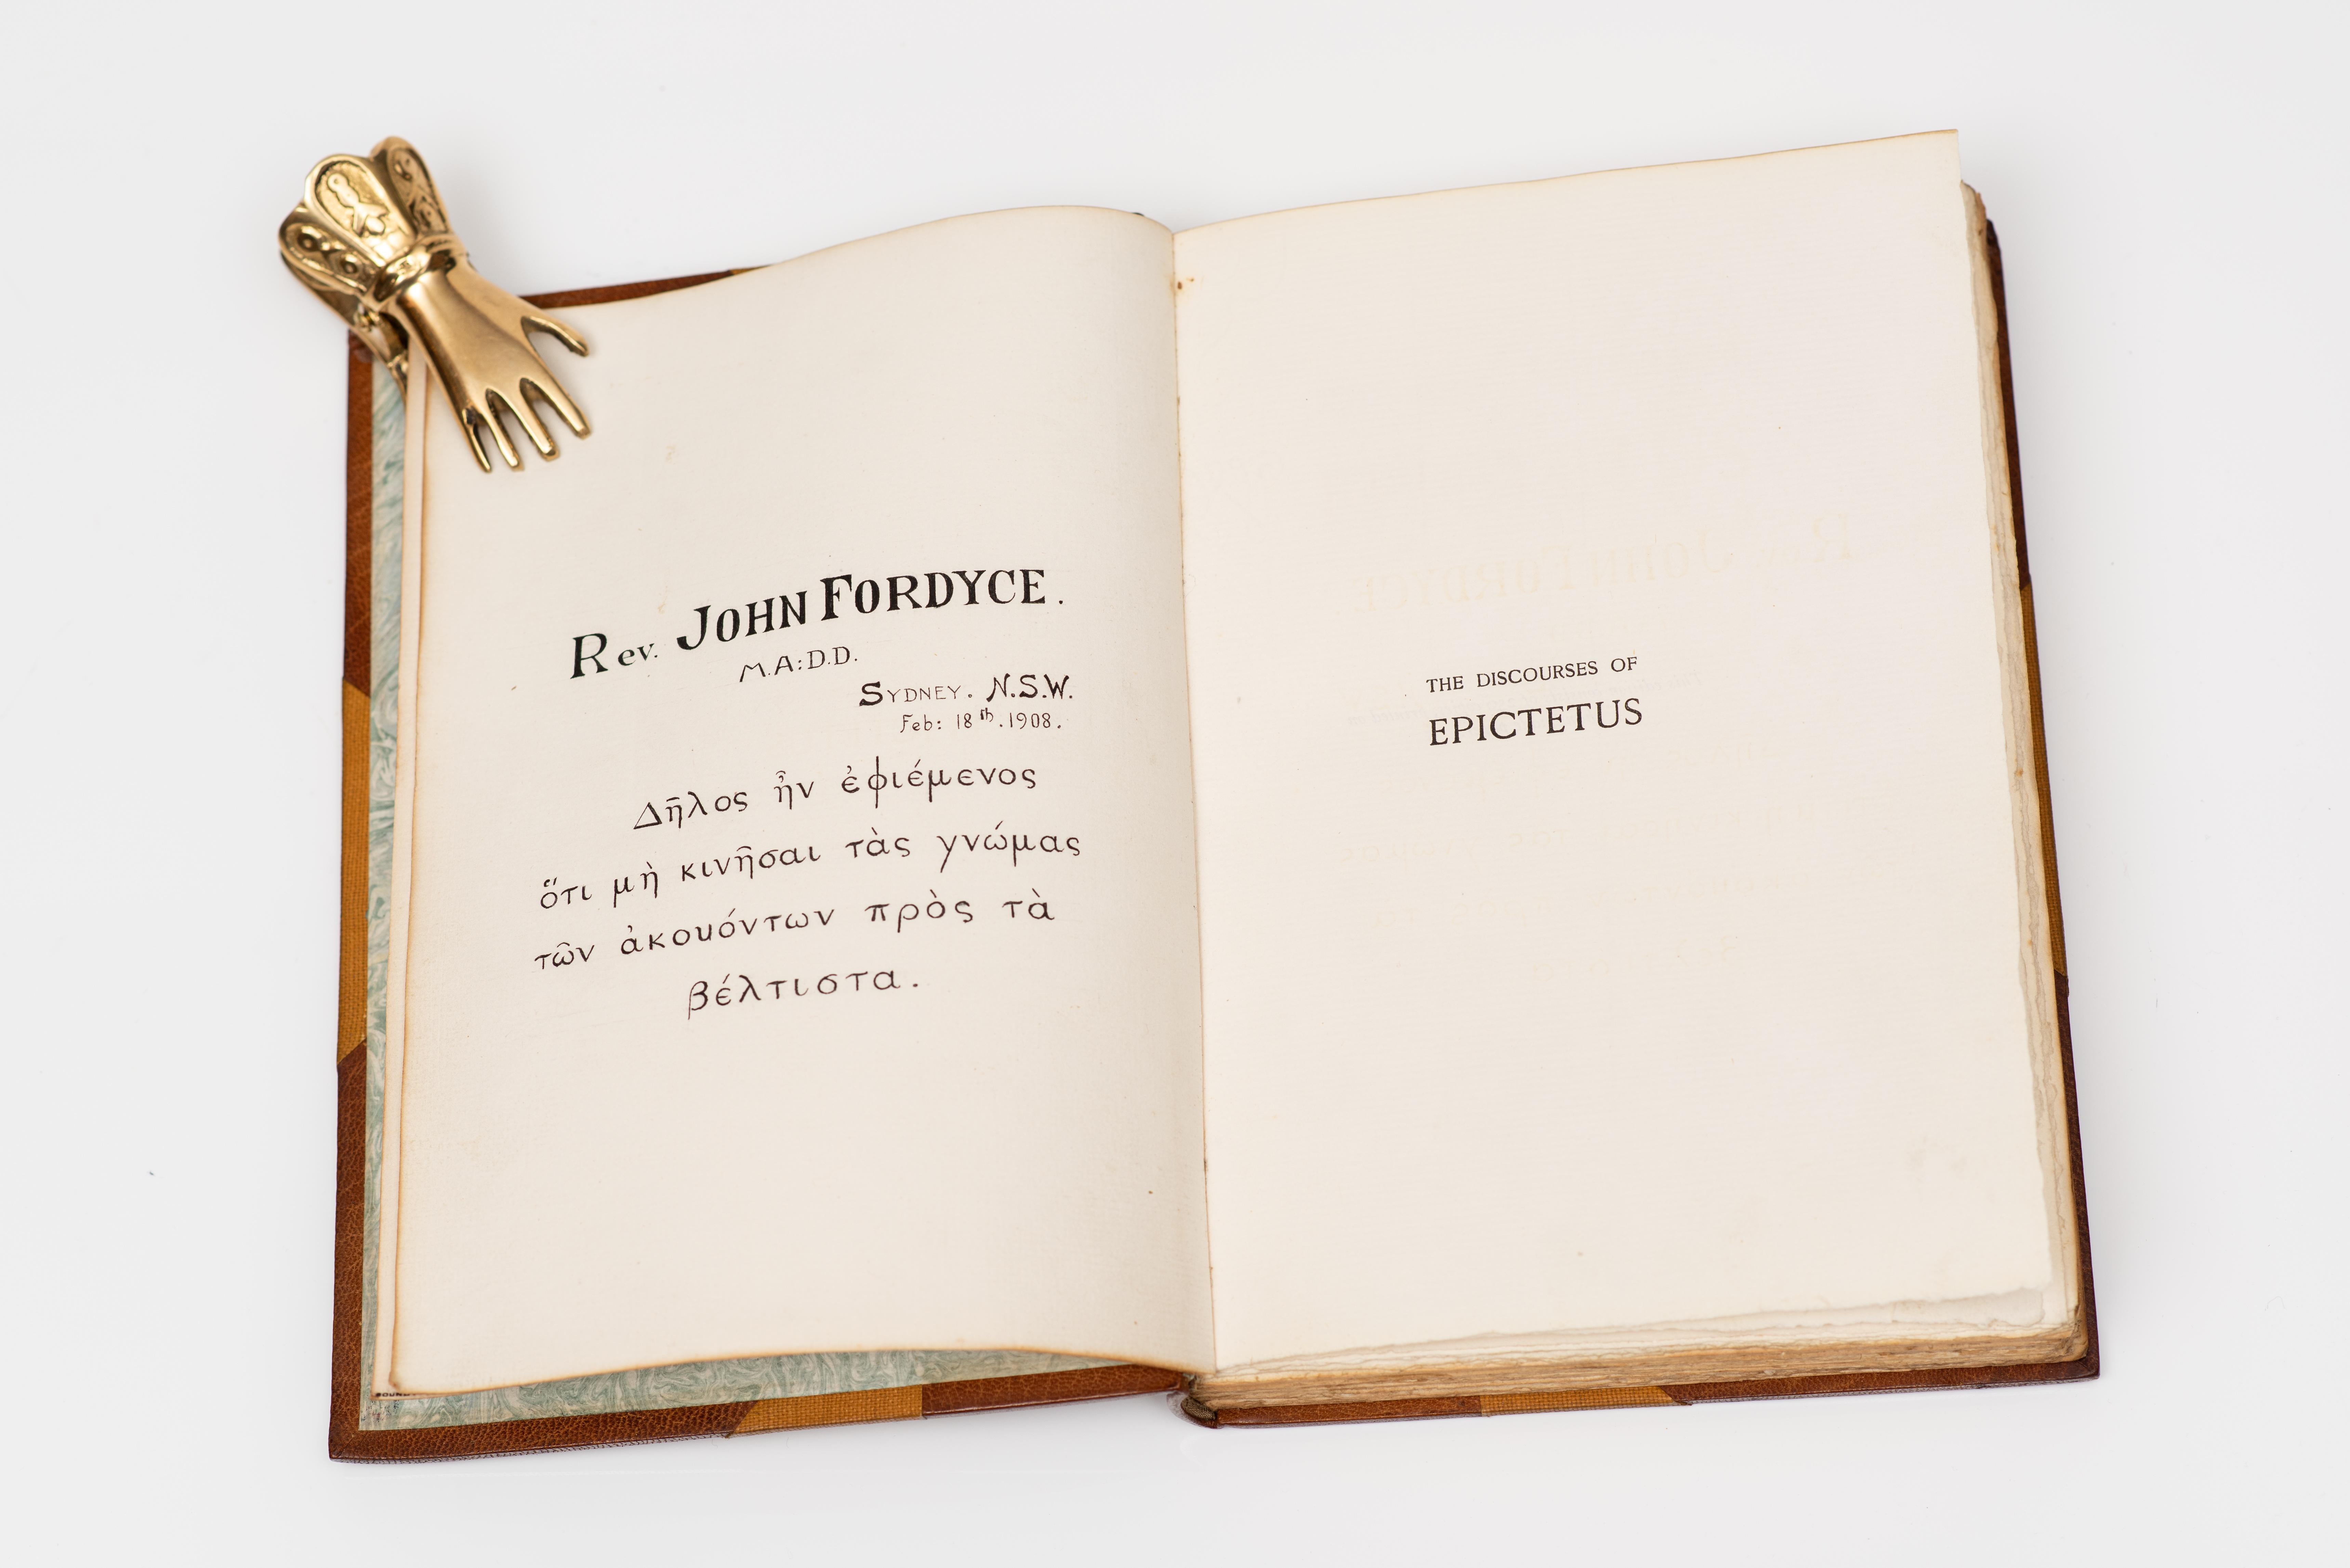 Rev. JOHN FORDYCE.
M.A: D.D.
SYDNEY. N.S.W.
Feb: 18th. 1908.
Δῆλος ἦν ἐφιέμενος
ὅτι μὴ κινῆσαι τὰς γνώμας
τῶν ἀκουόντων πρὸς τὰ
βέλτιστα.
THE DISCOURSES OF
EPICTETUS